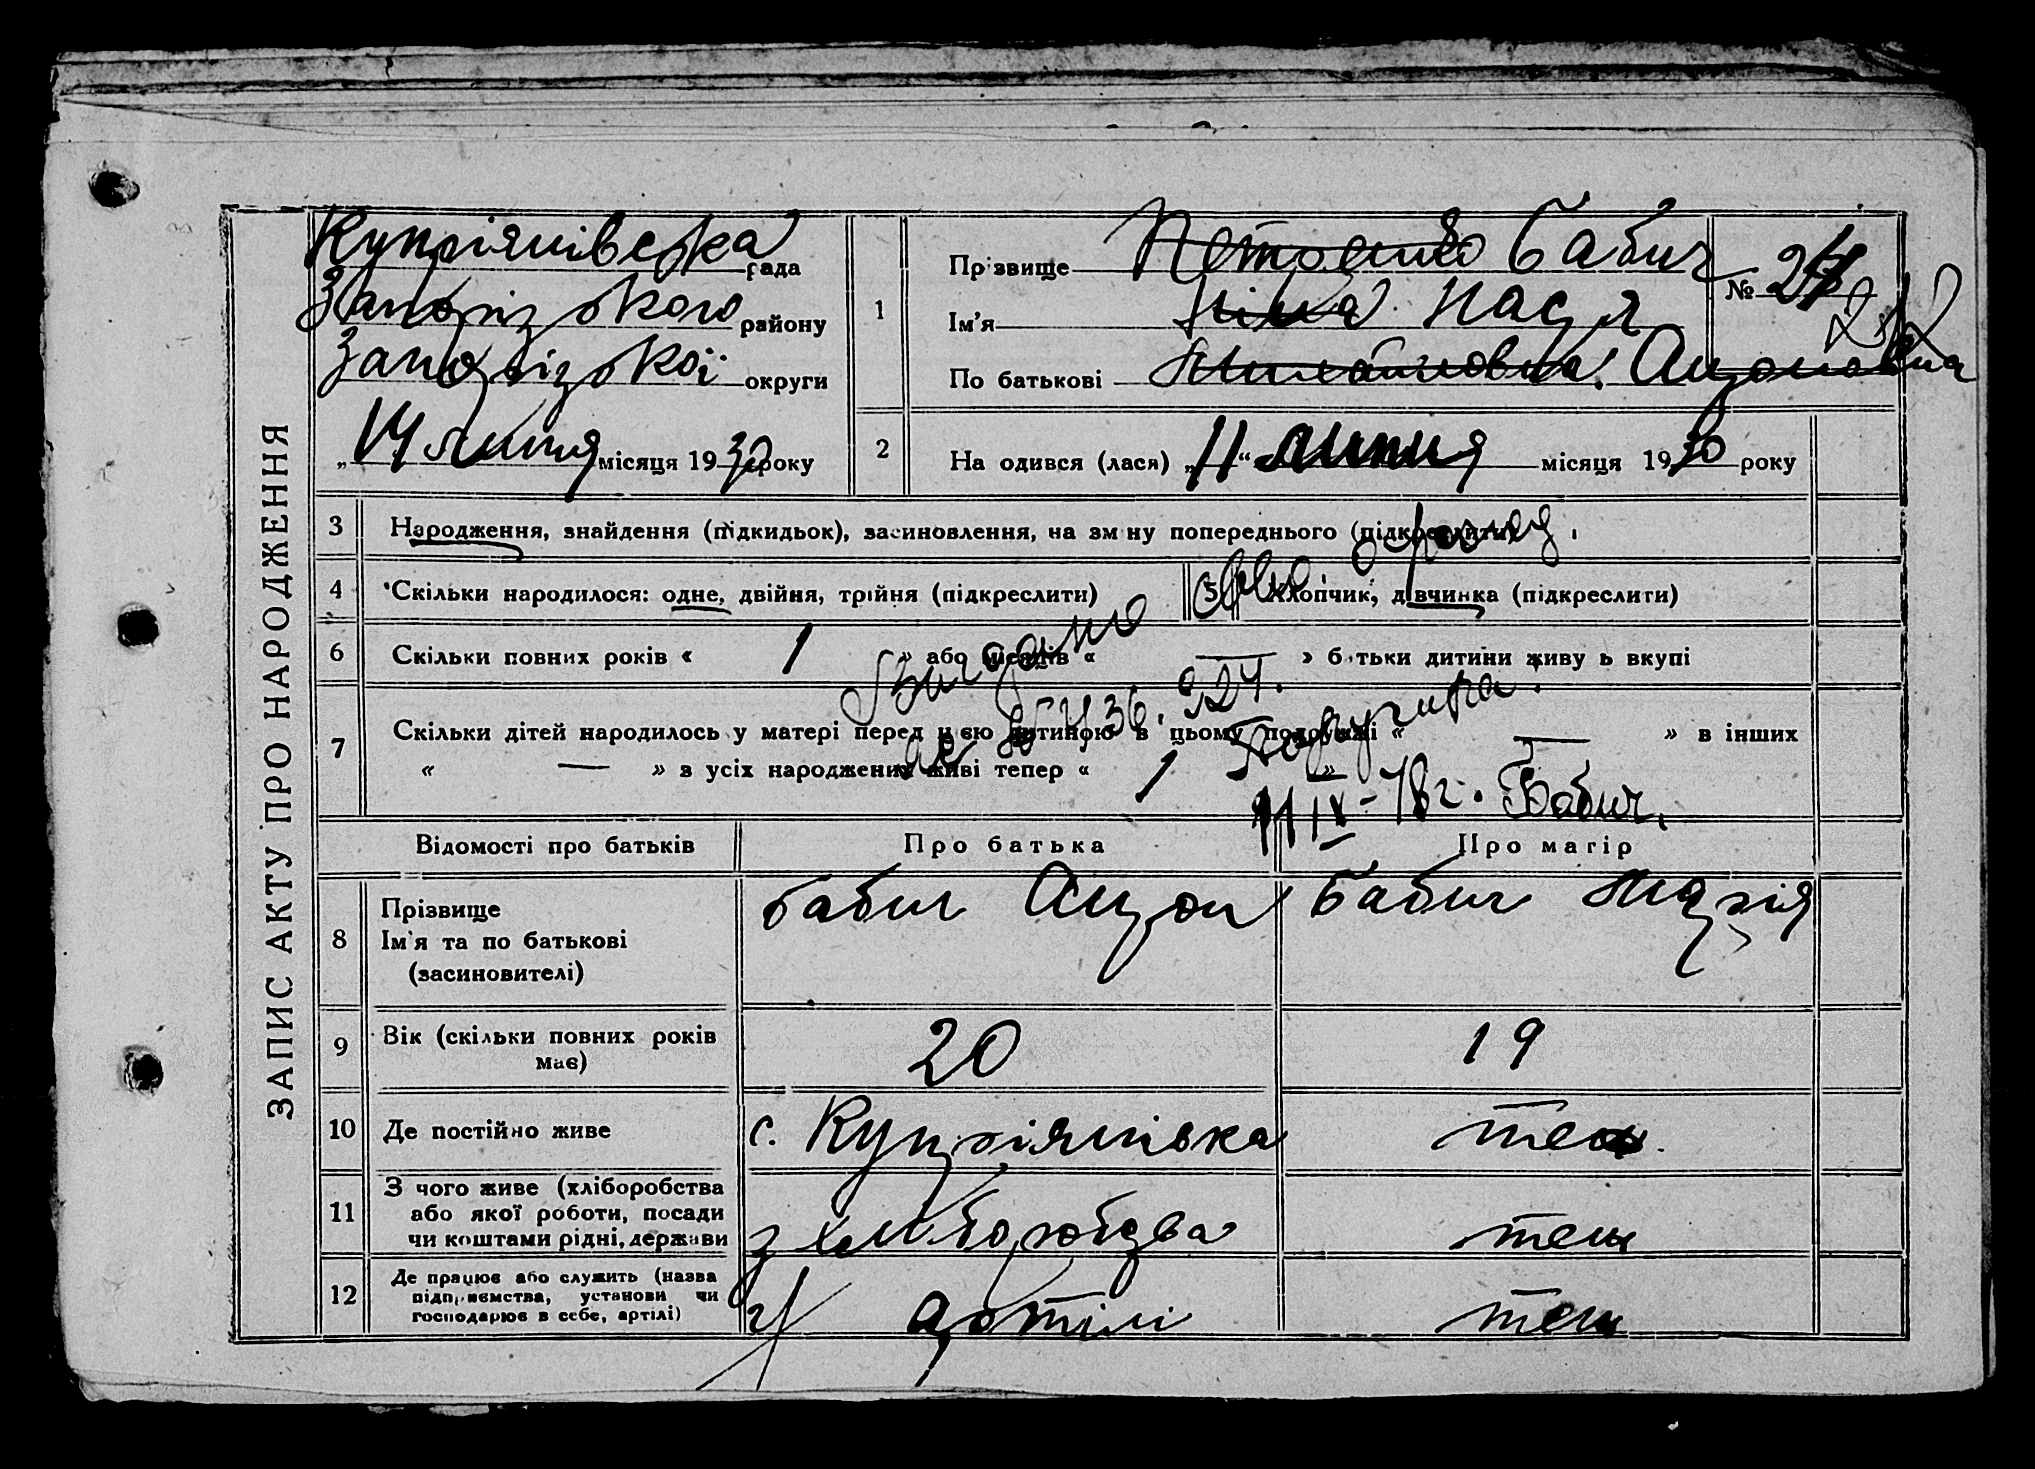 ЗАПИС АКТУ ПРО НАРОДЖЕННЯ
Купріянівська рада
Запорізького району
Запорізької округи
„14 липня місяця 1930 року
1 Прізвище Петренко Бабич
Ім'я Ніна Настя
По батькові Михайловна. Андроновна
№ 24
2 Народився (лася) „11“ липня місяця 1930 року
3 Народження, знайдення (підкидьок), засиновлення, на зміну попереднього (підкреслити)
4 Скільки народилося: одне, двійня, трійня (підкреслити) 5 Хлопчик, дівчинка (підкреслити)
6 Скільки повних років « 1 » або місяців « — » батьки дитини живуть вкупі
7 Скільки дітей народилось у матері перед цією дитиною в цьому подружжі « — » в інших
« — » з усіх народжених живі тепер « 1 »
Відомості про батьків Про батька Про матір
8 Прізвище Ім'я та по батькові (засиновителі) Бабич Бабич Марія
9 Вік (скільки повних років має) 20 19
10 Де постійно живе с. Купріянівка теж.
11 З чого живе (хліборобства або якої роботи, посади чи коштами рідні, держави з хліборобства теж
12 Де працює або служить (назва підприємства, установи чи господарює в себе, артілі) у артілі теж
Выдано свид. о рожд.
Получила
11 IX-78г. Бабич.